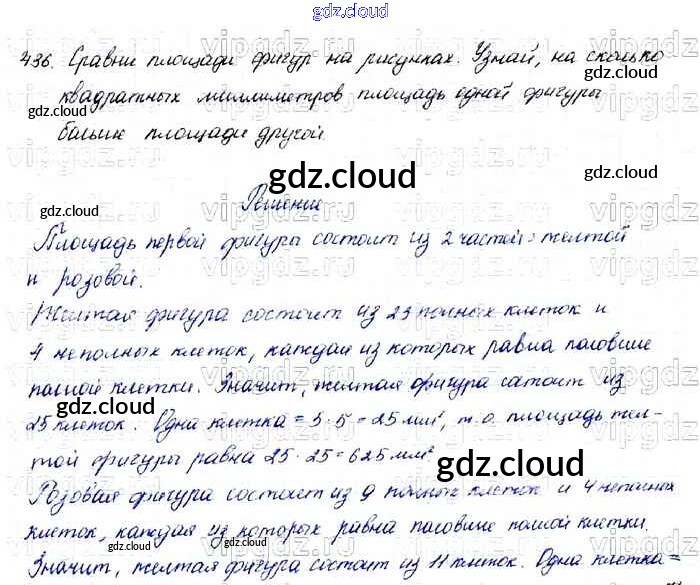 gdz.cloud
436. Сравни площади фигур на рисунках. Узнай, на сколько
квадратных миллиметров площадь одной фигуры
больше площади другой.
gdz.cloud
gdz.cloud
gdz.cloud
Решение
Площадь первой фигуры состоит из 2 частей: желтой
и розовой.
Желтая фигура состоит из 23 полных клеток и
4 неполных клеток, каждая из которых равна половине
полной клетки. Значит, желтая фигура состоит из
gdz.cloud
25 клеток. Одна клетка = 5·5=25 мм², т.о. площадь жел-
той фигуры равна 25·25=625 мм²
gdz.cloud
Розовая фигура состоит из 9 полных клеток и 4 неполных
клеток, каждая из которых равна половине полной клетки.
gdz.cloud
Значит, желтая фигура состоит из 11 клеток. Одна клетка=